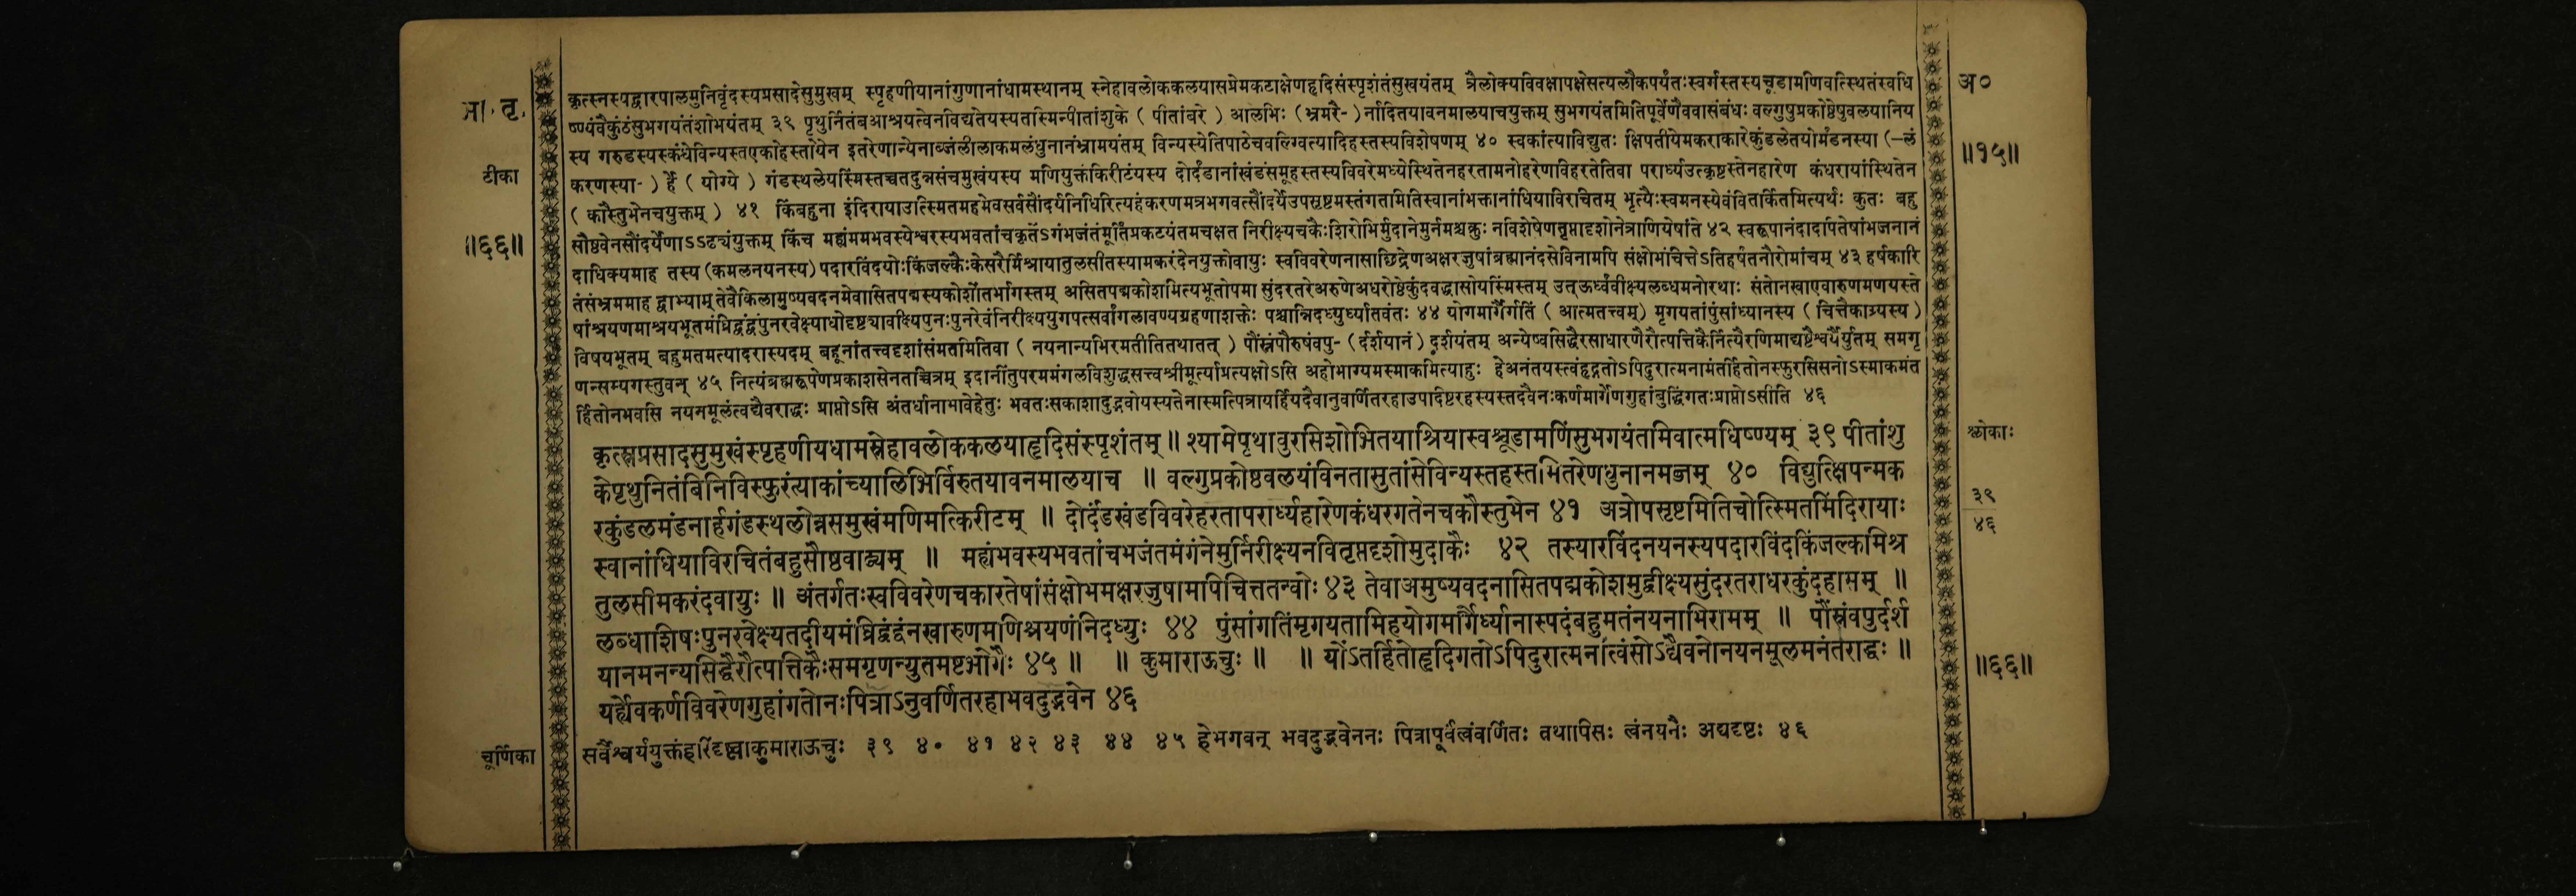 भा. तृ.
टीका
॥६६॥
चूर्णिका
कृत्स्नस्यद्वारपालमुनिवृंदस्यप्रसादेसुमुखम् स्पृहणीयानांगुणानांधामस्थानम् स्नेहावलोककलयासप्रेमकटाक्षेणहृदिसंस्पृशंतंसुखयंतम् त्रैलोक्यविवक्षापक्षेसत्यलोकपर्यंतःस्वर्गस्तस्यचूडामणिवत्स्थितंस्वधि
ष्ण्यंवैकुंठंसुभगयंतंशोभयंतम् ३९ पृथुर्नितंबआश्रयत्वेनविद्यतेयस्यतस्मिन्पीतांशुके ( पीतांबरे ) आलभिः (भ्रमरै-) र्नादितयावनमालयाचयुक्तम् सुभगयंतमितिपूर्वेणैववासंबंधः वल्गुषुप्रकोष्ठेषुवलयानिय
स्य गरुडस्यस्कंधेविन्यस्तएकोहस्तोयेन इतरेणान्येनाब्जंलीलाकमलंधुनानंभ्रामयंतम् विन्यस्येतिपाठेचवल्ग्वित्यादिहस्तस्यविशेषणम् ४० स्वकांत्याविद्युतः क्षिपतीयेमकराकारेकुंडलेतयोर्मंडनस्या (–लं
करणस्या- ) र्हे ( योग्ये ) गंडस्थलेयस्मिंस्तच्चतदुन्नसंचमुखंयस्य मणियुक्तंकिरीटंयस्य दोर्दंडानांखंडंसमूहस्तस्यविवरेमध्येस्थितेनहरतामनोहरेणविहरतेतिवा परार्ध्यउत्कृष्टस्तेनहारेण कंधरायांस्थितेन
( कौस्तुभेनचयुक्तम् ) ४१ किंबहुना इंदिरायाउत्स्मितमहमेवसर्वसौंदर्यनिधिरित्यहंकरणमत्रभगवत्सौंदर्येउपसृष्टमस्तंगतमितिस्वानांभक्तानांधियाविरचितम् भृत्यैःस्वमनस्येवंवितर्कितमित्यर्थः कुतः बहु
सौष्ठवेनसौंदर्येणाऽऽढ्यंयुक्तम् किंच मह्यंममभवस्येश्वरस्यभवतांचकृतेंऽगंभजंतंमूर्तिंप्रकटयंतमचक्षत निरीक्ष्यचकैःशिरोभिर्मुदानेमुर्नमश्चक्रुः नविशेषेणतृप्तादृशोनेत्राणियेषांते ४२ स्वरूपानंदादपितेषांभजनानं
दाधिक्यमाह तस्य (कमलनयनस्य) पदारविंदयोःकिंजल्कैःकेसरैर्मिश्रायातुलसीतस्यामकरंदेनयुक्तोवायुः स्वविवरेणनासाछिद्रेणअक्षरजुषांब्रह्मानंदसेविनामपि संक्षोभंचित्तेऽतिहर्षंतनौरोमांचम् ४३ हर्षकारि
तंसंभ्रममाह द्वाभ्याम् तेवैकिलामुष्यवदनमेवासितपद्मस्यकोशोंतर्भागस्तम् असितपद्मकोशमित्यभूतोपमा सुंदरतरेअरुणेअधरोष्ठेकुंदवद्धासोयस्मिंस्तम् उत्ऊर्ध्वंवीक्ष्यलब्धमनोरथाः संतोनखाएवारुणमणयस्ते
षांश्रयणमाश्रयभूतमंघ्रिद्वंद्वंपुनरवेक्ष्याधोदृष्ट्यावक्ष्यिपुनःपुनरेवंनिरीक्ष्ययुगपत्सर्वांगलावण्यग्रहणाशक्तेः पश्चान्निदध्युर्ध्यातवंतः ४४ योगमार्गैर्गतिं ( आत्मतत्त्वम्) मृगयतांपुंसांध्यानस्य ( चित्तैकाग्र्यस्य )
विषयभूतम् बहुमतमत्यादरास्पदम् बहूनांतत्त्वदृशांसंमतमितिवा ( नयनान्यभिरमतीतितथातत् ) पौंस्नंपौरुषंवपु- (र्दर्शयानं ) दर्शयंतम् अन्येष्वसिद्धैरसाधारणैरौत्पत्तिकैर्नित्यैरणिमाद्यष्टैश्वर्यैर्युतम् समगृ
णन्सम्यगस्तुवन् ४५ नित्यंब्रह्मरूपेणप्रकाशसेनतच्चित्रम् इदानींतुपरममंगलविशुद्धसत्त्वश्रीमूर्त्याप्रत्यक्षोऽसि अहोभाग्यमस्माकमित्याहुः हेअनंतयस्त्वंहृद्गतोऽपिदुरात्मनामंतर्हितोनस्फुरसिसनोऽस्माकमंत
र्हितोनभवसि नयनमूलंत्वद्यैवराद्धः प्राप्तोऽसि अंतर्धानाभावेहेतुः भवतःसकाशादुद्भवोयस्यतेनास्मत्पित्रायर्हियदैवानुवर्णितरहाउपदिष्टरहस्यस्तदैवनःकर्णमार्गेणगुहांबुद्धिंगतःप्राप्तोऽसीति ४६
कृत्स्नप्रसादसुमुखंस्पृहणीयधामस्नेहावलोककलयाहृदिसंस्पृशंतम् ॥ श्यामेपृथावुरसिशोभितयाश्रियास्वश्चूडामणिंसुभगयंतमिवात्मधिष्ण्यम् ३९ पीतांशु
केपृथुनितंबिनिविस्फुरंत्याकांच्यालिभिर्विरुतयावनमालयाच ॥ वल्गुप्रकोष्ठवलयंविनतासुतांसेविन्यस्तहस्तमितरेणधुनानमब्जम् ४० विद्युत्क्षिपन्मक
रकुंडलमंडनार्हगंडस्थलोन्नसमुखंमणिमत्किरीटम् ॥ दोर्दंडखंडविवरेहरतापरार्ध्यहारेणकंधरगतेनचकौस्तुभेन ४१ अत्रोपसृष्टमितिचोत्स्मितमिंदिरायाः
स्वानांधियाविरचितंबहुसौष्ठवाढ्यम् ॥ मह्यंभवस्यभवतांचभजंतमंगंनेमुर्निरीक्ष्यनवितृप्तदृशोमुदाकैः ४२ तस्यारविंदनयनस्यपदारविंदकिंजल्कमिश्र
तुलसीमकरंदवायुः ॥ अंतर्गतःस्वविवरेणचकारतेषांसंक्षोभमक्षरजुषामपिचित्ततन्वोः ४३ तेवाअमुष्यवदनासितपद्मकोशमुद्वीक्ष्यसुंदरतराधरकुंदहासम् ॥
लब्धाशिषःपुनरवेक्ष्यतदीयमंघ्रिद्वंद्वंनखारुणमणिश्रयणंनिदध्युः ४४ पुंसांगतिंमृगयतामिहयोगमार्गैर्ध्यानास्पदंबहुमतंनयनाभिरामम् ॥ पौंस्नंवपुर्दर्श
यानमनन्यसिद्धैरौत्पत्तिकैःसमगृणन्युतमष्टभोगैः ४५ ॥ ॥ कुमाराऊचुः ॥ ॥ योंऽतर्हितोहृदिगतोऽपिदुरात्मनांत्वंसोऽद्यैवनोनयनमूलमनंतराद्धः ॥
यर्ह्येवकर्णविवरेणगुहांगतोनःपित्राऽनुवर्णितरहाभवदुद्भवेन ४६
सर्वैश्वर्ययुक्तंहरिंदृष्ट्वाकुमाराऊचुः ३९ ४० ४१ ४२ ४३ ४४ ४५ हेभगवन् भवदुद्भवेननः पित्रापूर्वंत्वंवर्णितः तथापिसः त्वंनयनैः अद्यदृष्टः ४६
अ०
॥१५॥
श्लोकाः
३९
४६
॥६६॥